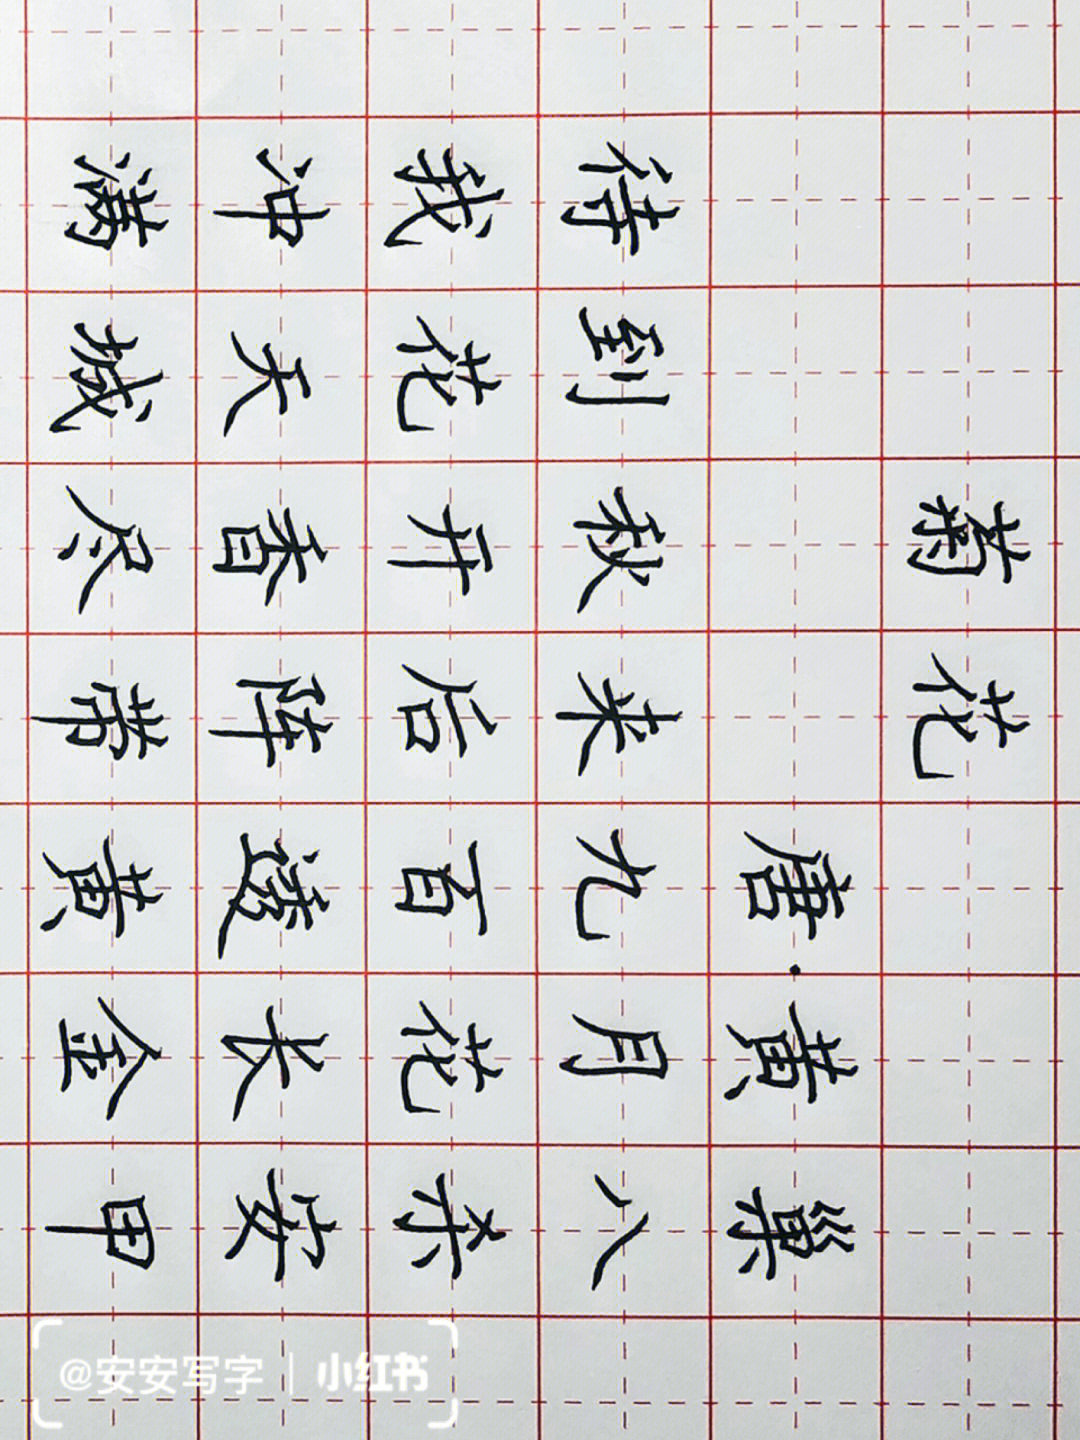 菊花
唐·黄巢
待到秋来九月八
我花开后百花杀
冲天香阵透长安
满城尽带黄金甲
@安安写字｜小红书